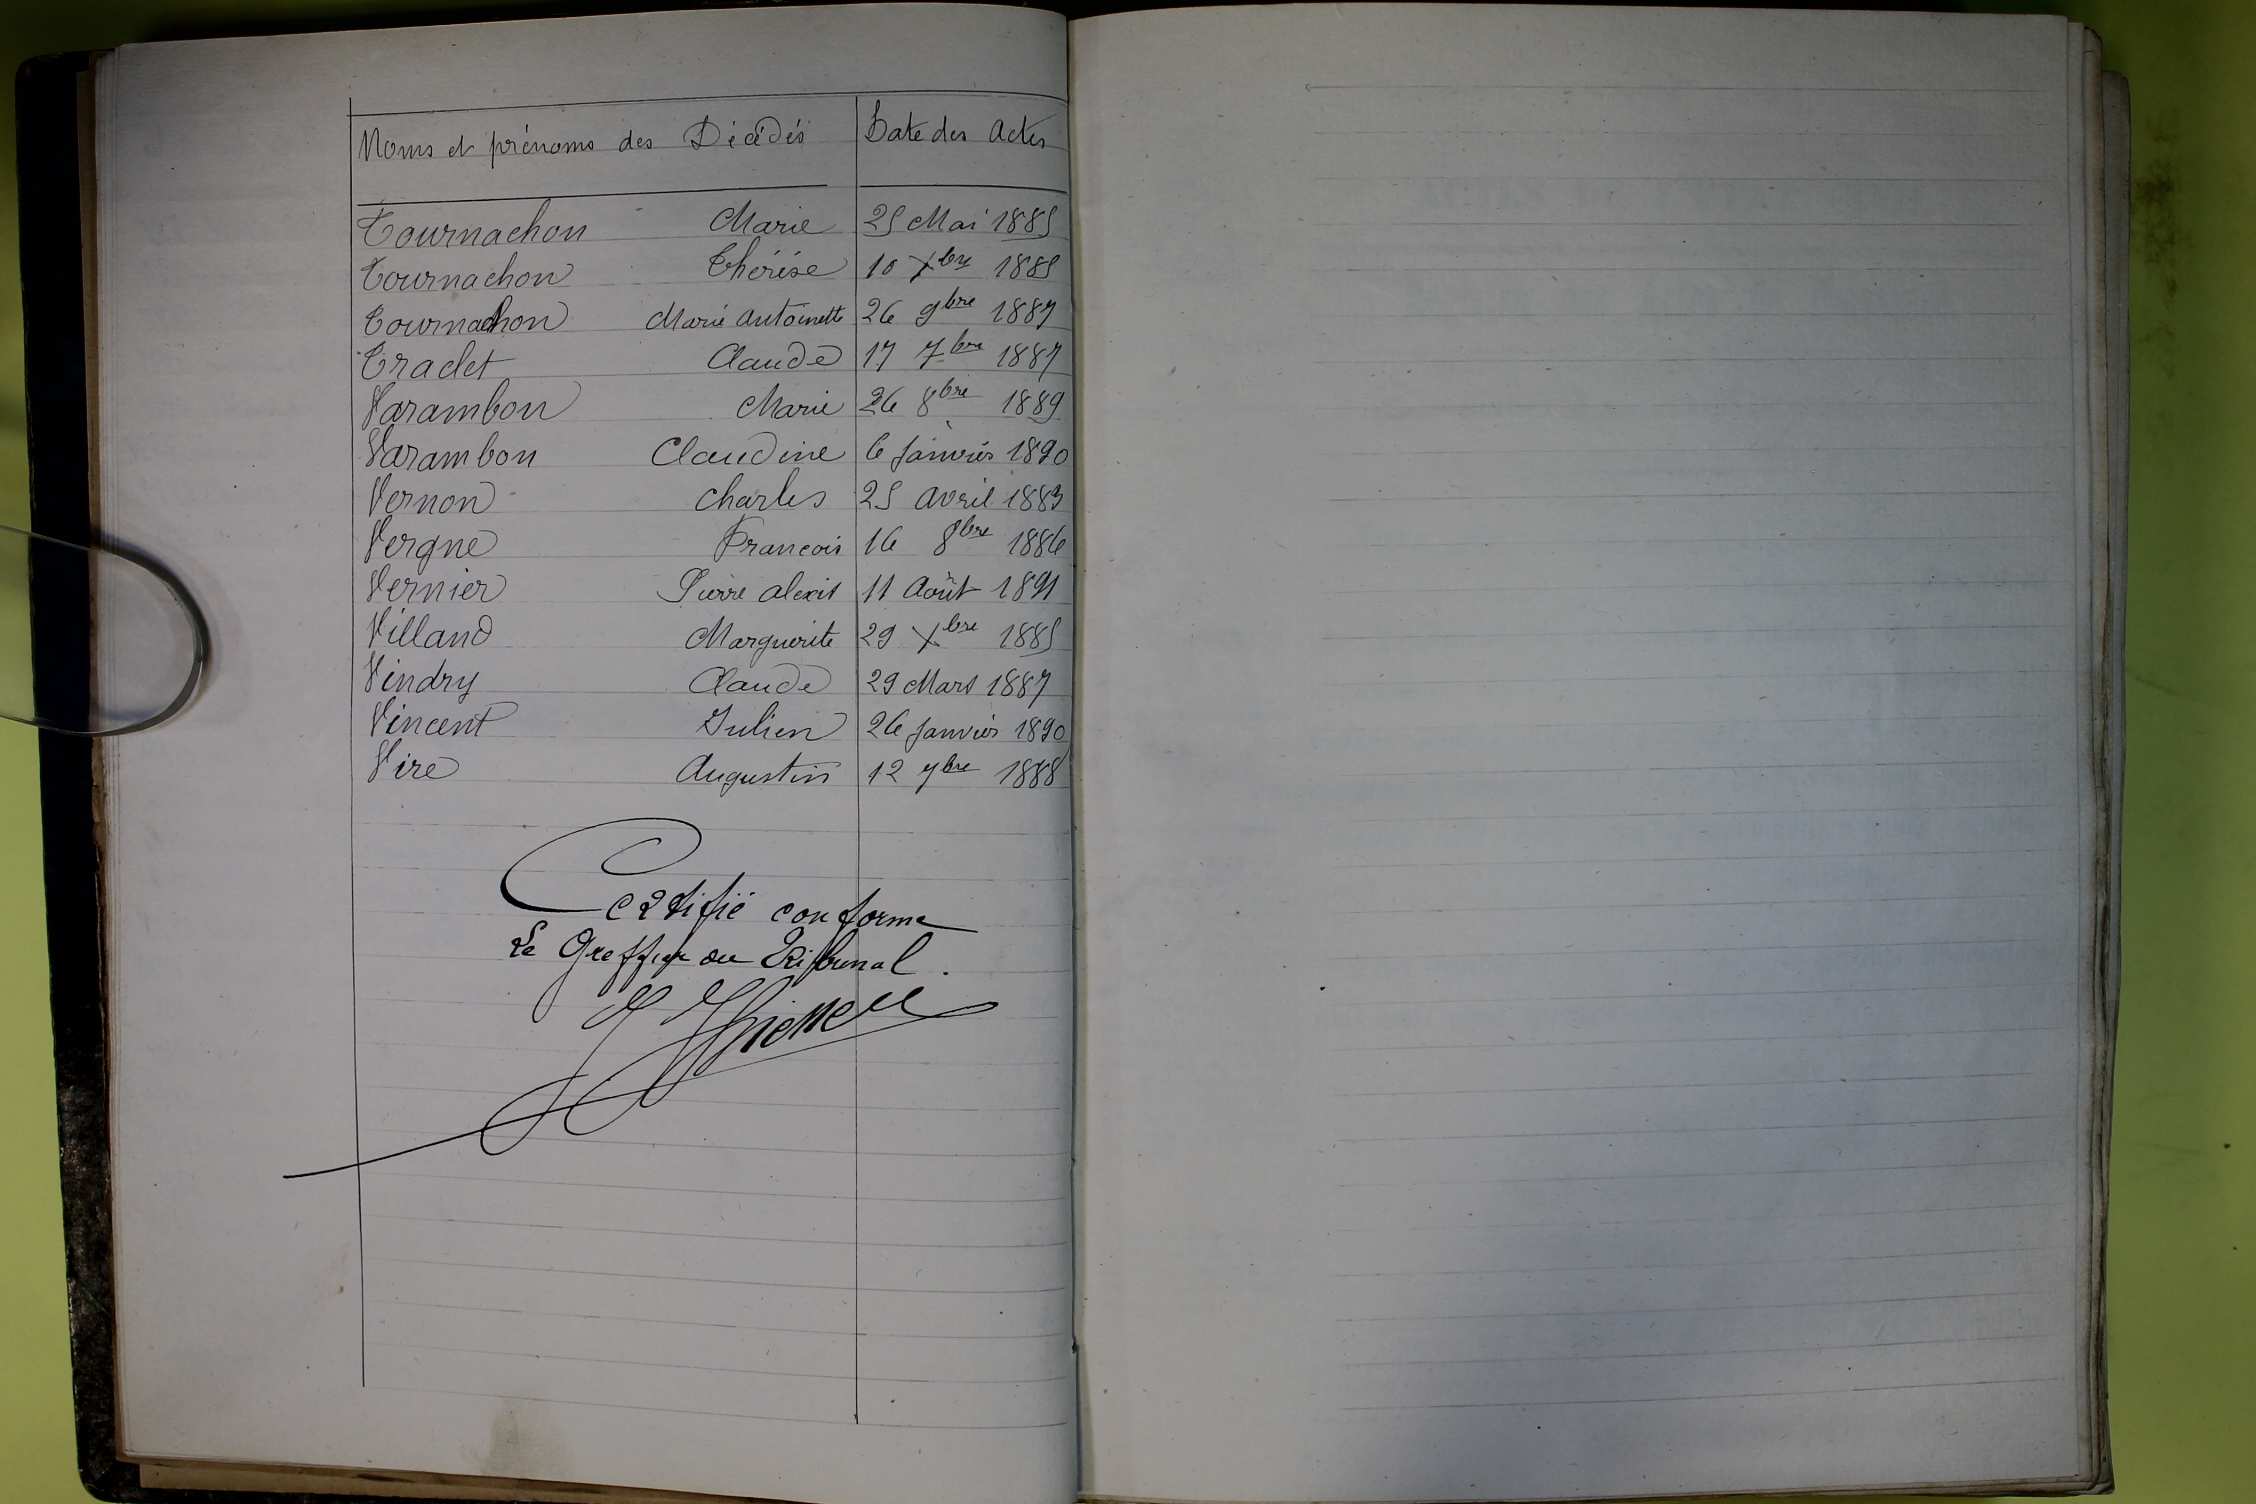 Noms et prénoms des Décédés Date des Actes
Tournachon Marie 25 Mai 1885
Tournachon Thérèse 10 Xbre 1885
Tournachon Marie Antoinette 26 9bre 1887
Traclet Claude 17 7bre 1887
Varambon Marie 26 8bre 1889
Varambon Claudine 6 Janvier 1890
Vernon Charles 25 avril 1883
Vergne Francois 16 8bre 1886
Vernier Pierre alexis 11 Août 1891
Villand Marguerite 29 Xbre 1885
Vindry Claude 29 Mars 1887
Vincent Julien 26 Janvier 1890
Vire Augustin 12 9bre 1888
Certifié conforme
Le Greffier du Tribunal.